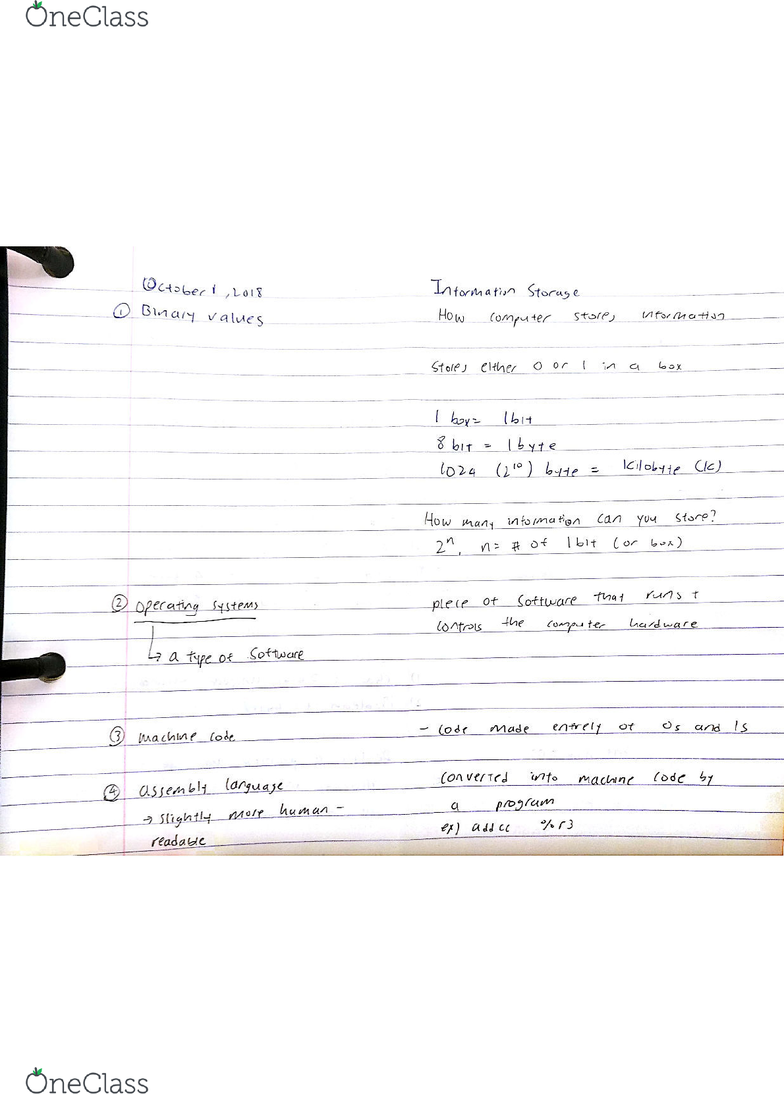 OneClass
October 1, 2018
Information Storage
① Binary values
How computer stores information
Stores either 0 or 1 in a box
1 box = 1bit
8 bit = 1byte
1024 (2¹⁰) byte = kilobyte (k)
How many information can you store?
2ⁿ, n = # of 1bit (or box)
② Operating systems
piece of software that runs +
controls the computer hardware
↳ a type of software
③ machine code
- code made entrely of 0s and 1s
④ assembly language
converted into machine code by
→ slightly more human -
a program
readable
ex) addcc %r3
OneClass